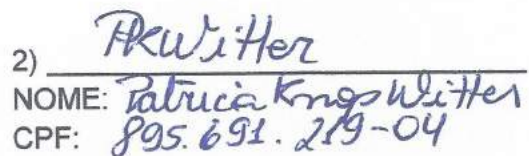 2) PKWitter
NOME: Patricia Knops Witter
CPF: 895.691.219-04